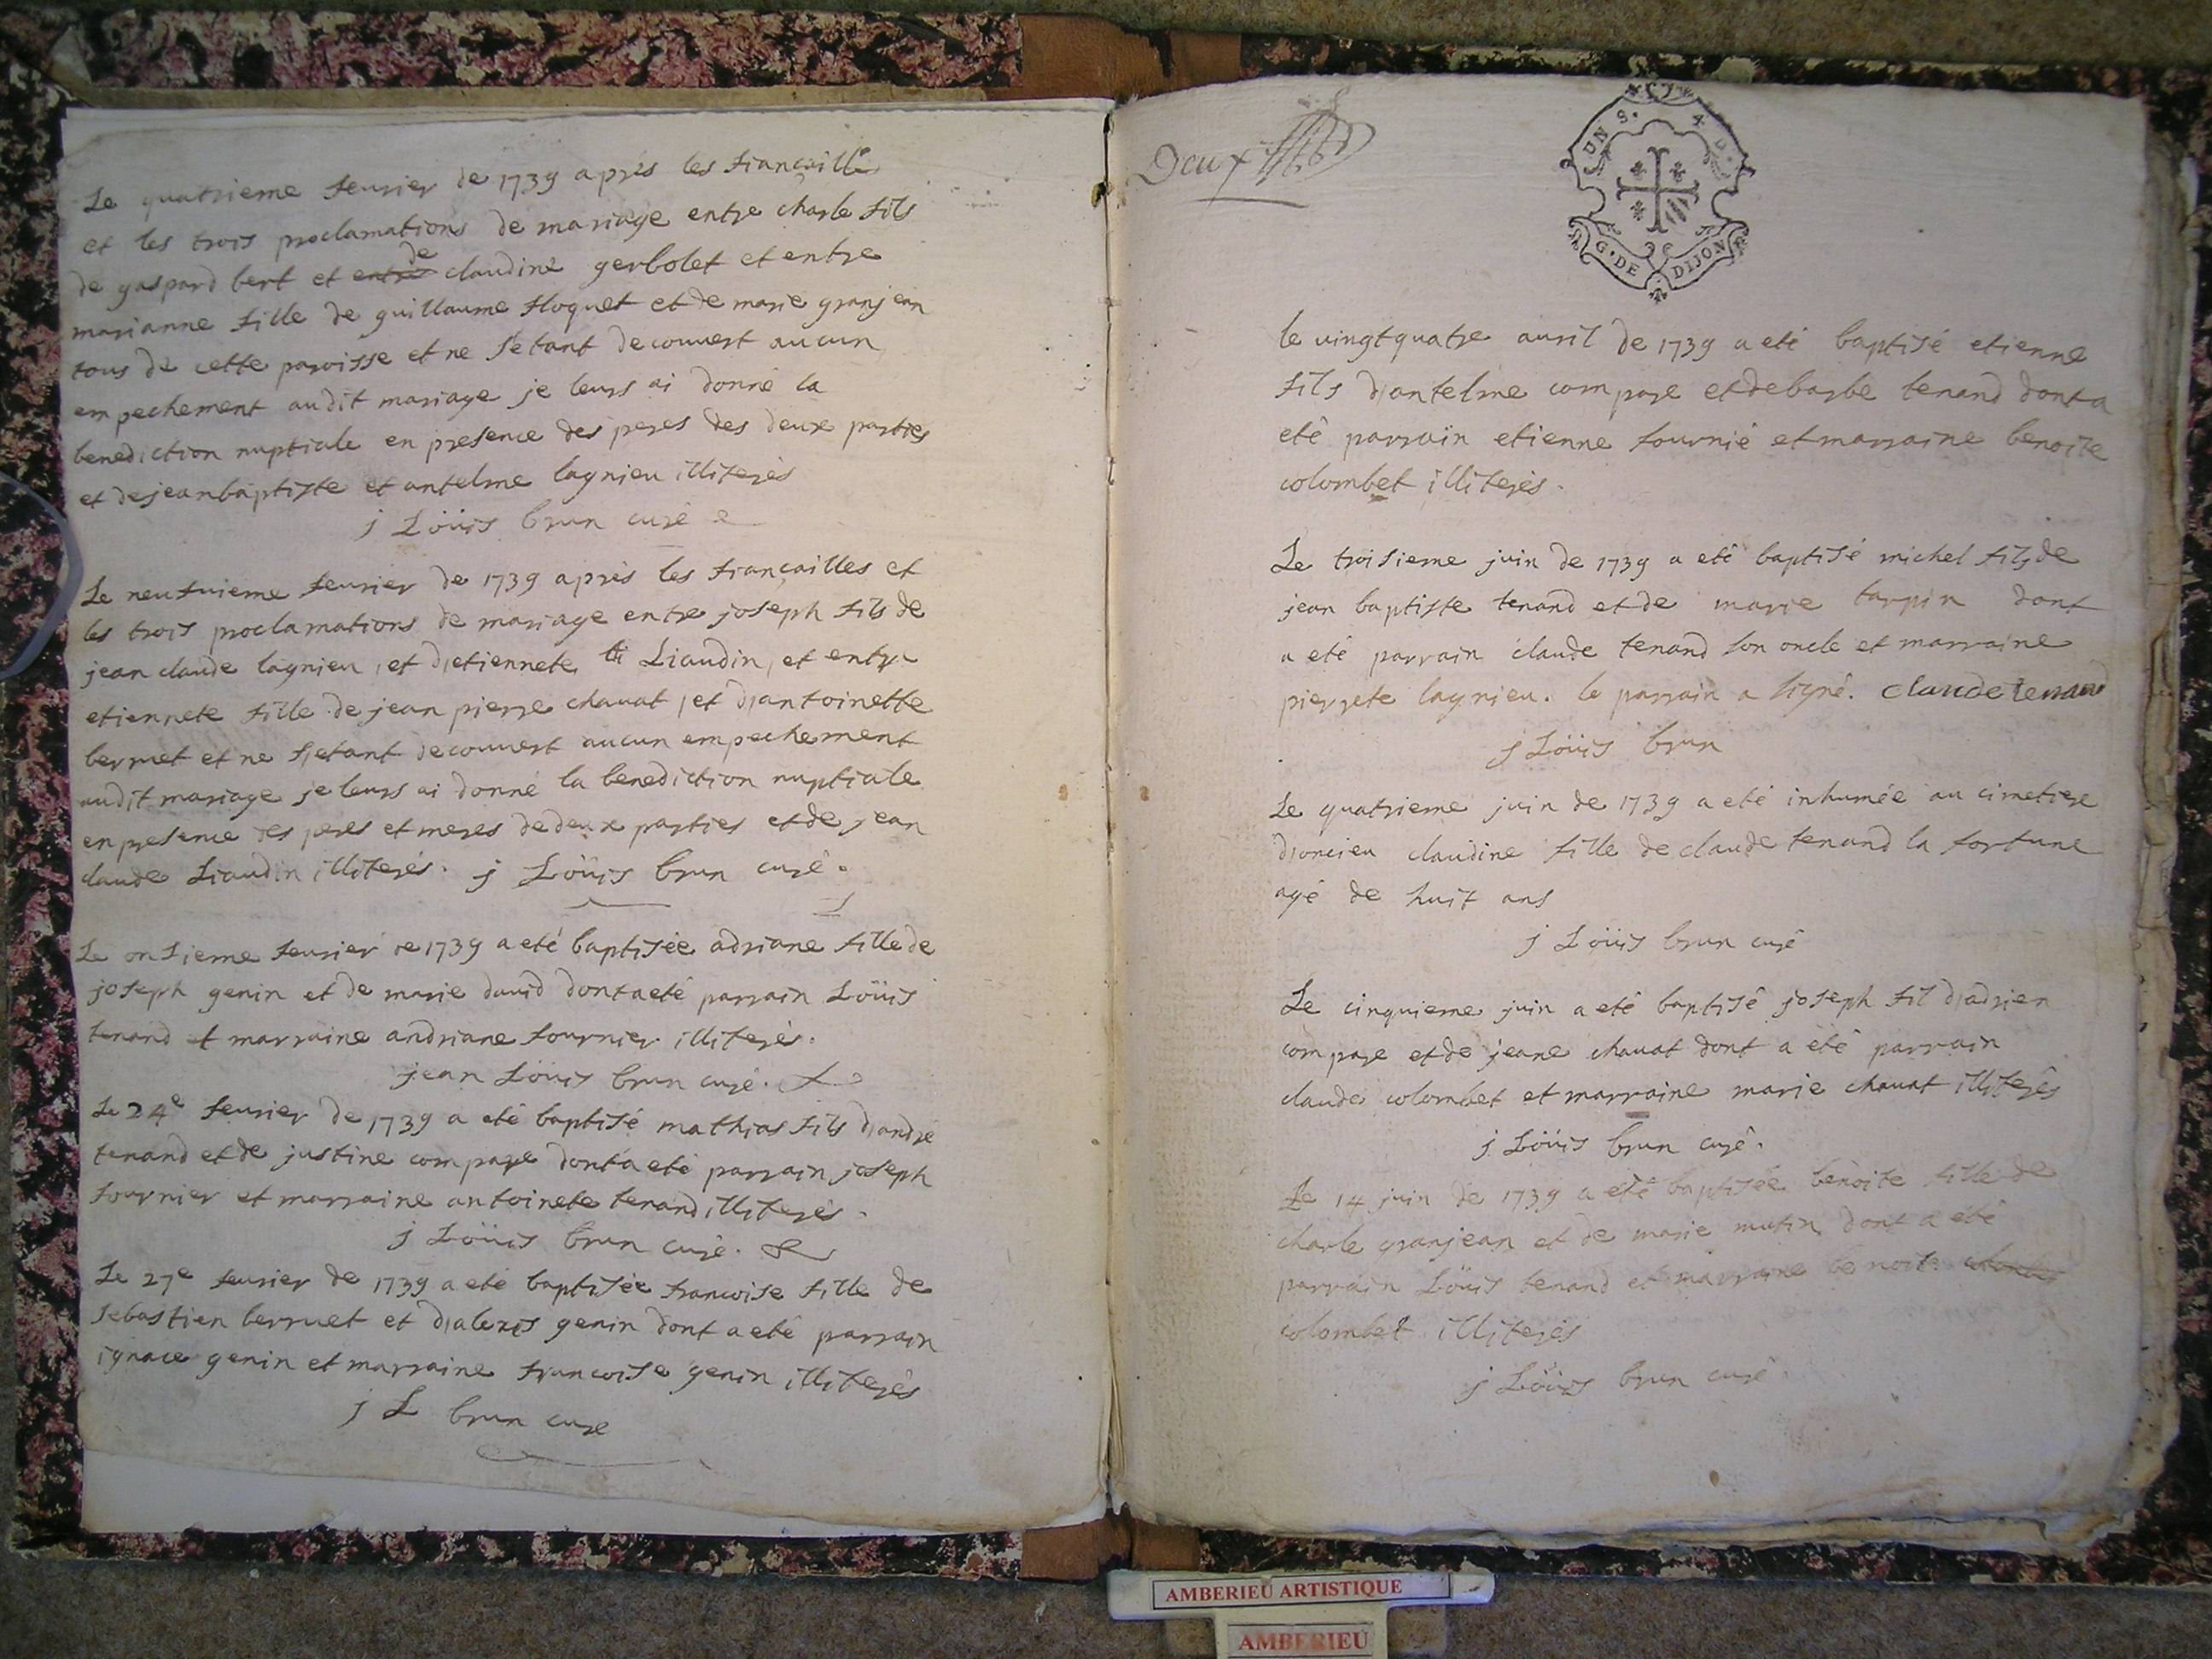 Le quatrieme feurier de 1739 aprés les fiancaille
et les trois proclamations de mariage entre charle fils
de gaspard bert et de claudine gerbolet et entre
marianne fille de guillaume floquet et de marie granjean
tous de cette paroisse et ne s'etant decouuert aucun
empechement audit mariage je leurs ai donné la
benediction nuptiale en presence des peres des deux parties
et de jeanbaptiste et antelme lagnieu illiterés
j Loüis brun curé
Le neufuieme feurier de 1739 aprés les fiançailles et
les trois proclamations de mariage entre joseph fils de
jean claude lagnieu, et d'etiennete Liaudin, et entre
etiennete fille de jean pierre chauat, et d'antoinette
berruet et ne s'etant decouuert aucun empechement
audit mariage je leurs ai donné la benediction nuptiale
en presence des peres et meres de deux parties et de jean
claude Liaudin illiterés. j Loüis brun curé.
Le onsieme feurier de 1739 a eté baptisée adriane fille de
joseph genin et de marie dauid dont a eté parrain Loüis
tenand et marraine andriane fournier illiterés.
jean Loüis brun curé.
Le 24e feurier de 1739 a eté baptisé mathias fils d'andré
tenand et de justine compare dont a eté parrain joseph
fournier et marraine antoinete tenand illiterés.
j Loüis brun curé.
Le 27e feurier de 1739 a eté baptisée francoise fille de
sebastien berruet et d'alexis genin dont a eté parrain
ignace genin et marraine francoise genin illiterés
j L brun cure
Deux
UN S. 4 D.
G. DE DIJON
le uingtquatre auril de 1739 a eté baptisé etienne
fils d'antelme compare et de barbe tenand dont a
eté parrain etienne fournié et marraine benoite
colombet illiterés.
Le troisieme juin de 1739 a eté baptisé michel fils de
jean baptiste tenand et de marie tarpin dont
a eté parrain claude tenand son oncle et marraine
pierrete lagnieu. le parrain a signé. claude tenand
j Loüis brun
Le quatrieme juin de 1739 a eté inhumée au cimetiere
d'oncieu claudine fille de claude tenand la fortune
agé de huit ans
j Loüis brun curé
Le cinquieme juin a eté baptisé joseph fil d'adrien
compare et de jeane chauat dont a eté parrain
claude colombet et marraine marie chauat illiterés
j Loüis brun curé.
Le 14 juin de 1739 a eté baptisée benoite fille de
charle granjean et de marie mutin dont a eté
parrain Loüis tenand et marraine benoite
colombet illiterés
j Loüis brun curé.
AMBERIEU ARTISTIQUE
AMBERIEU